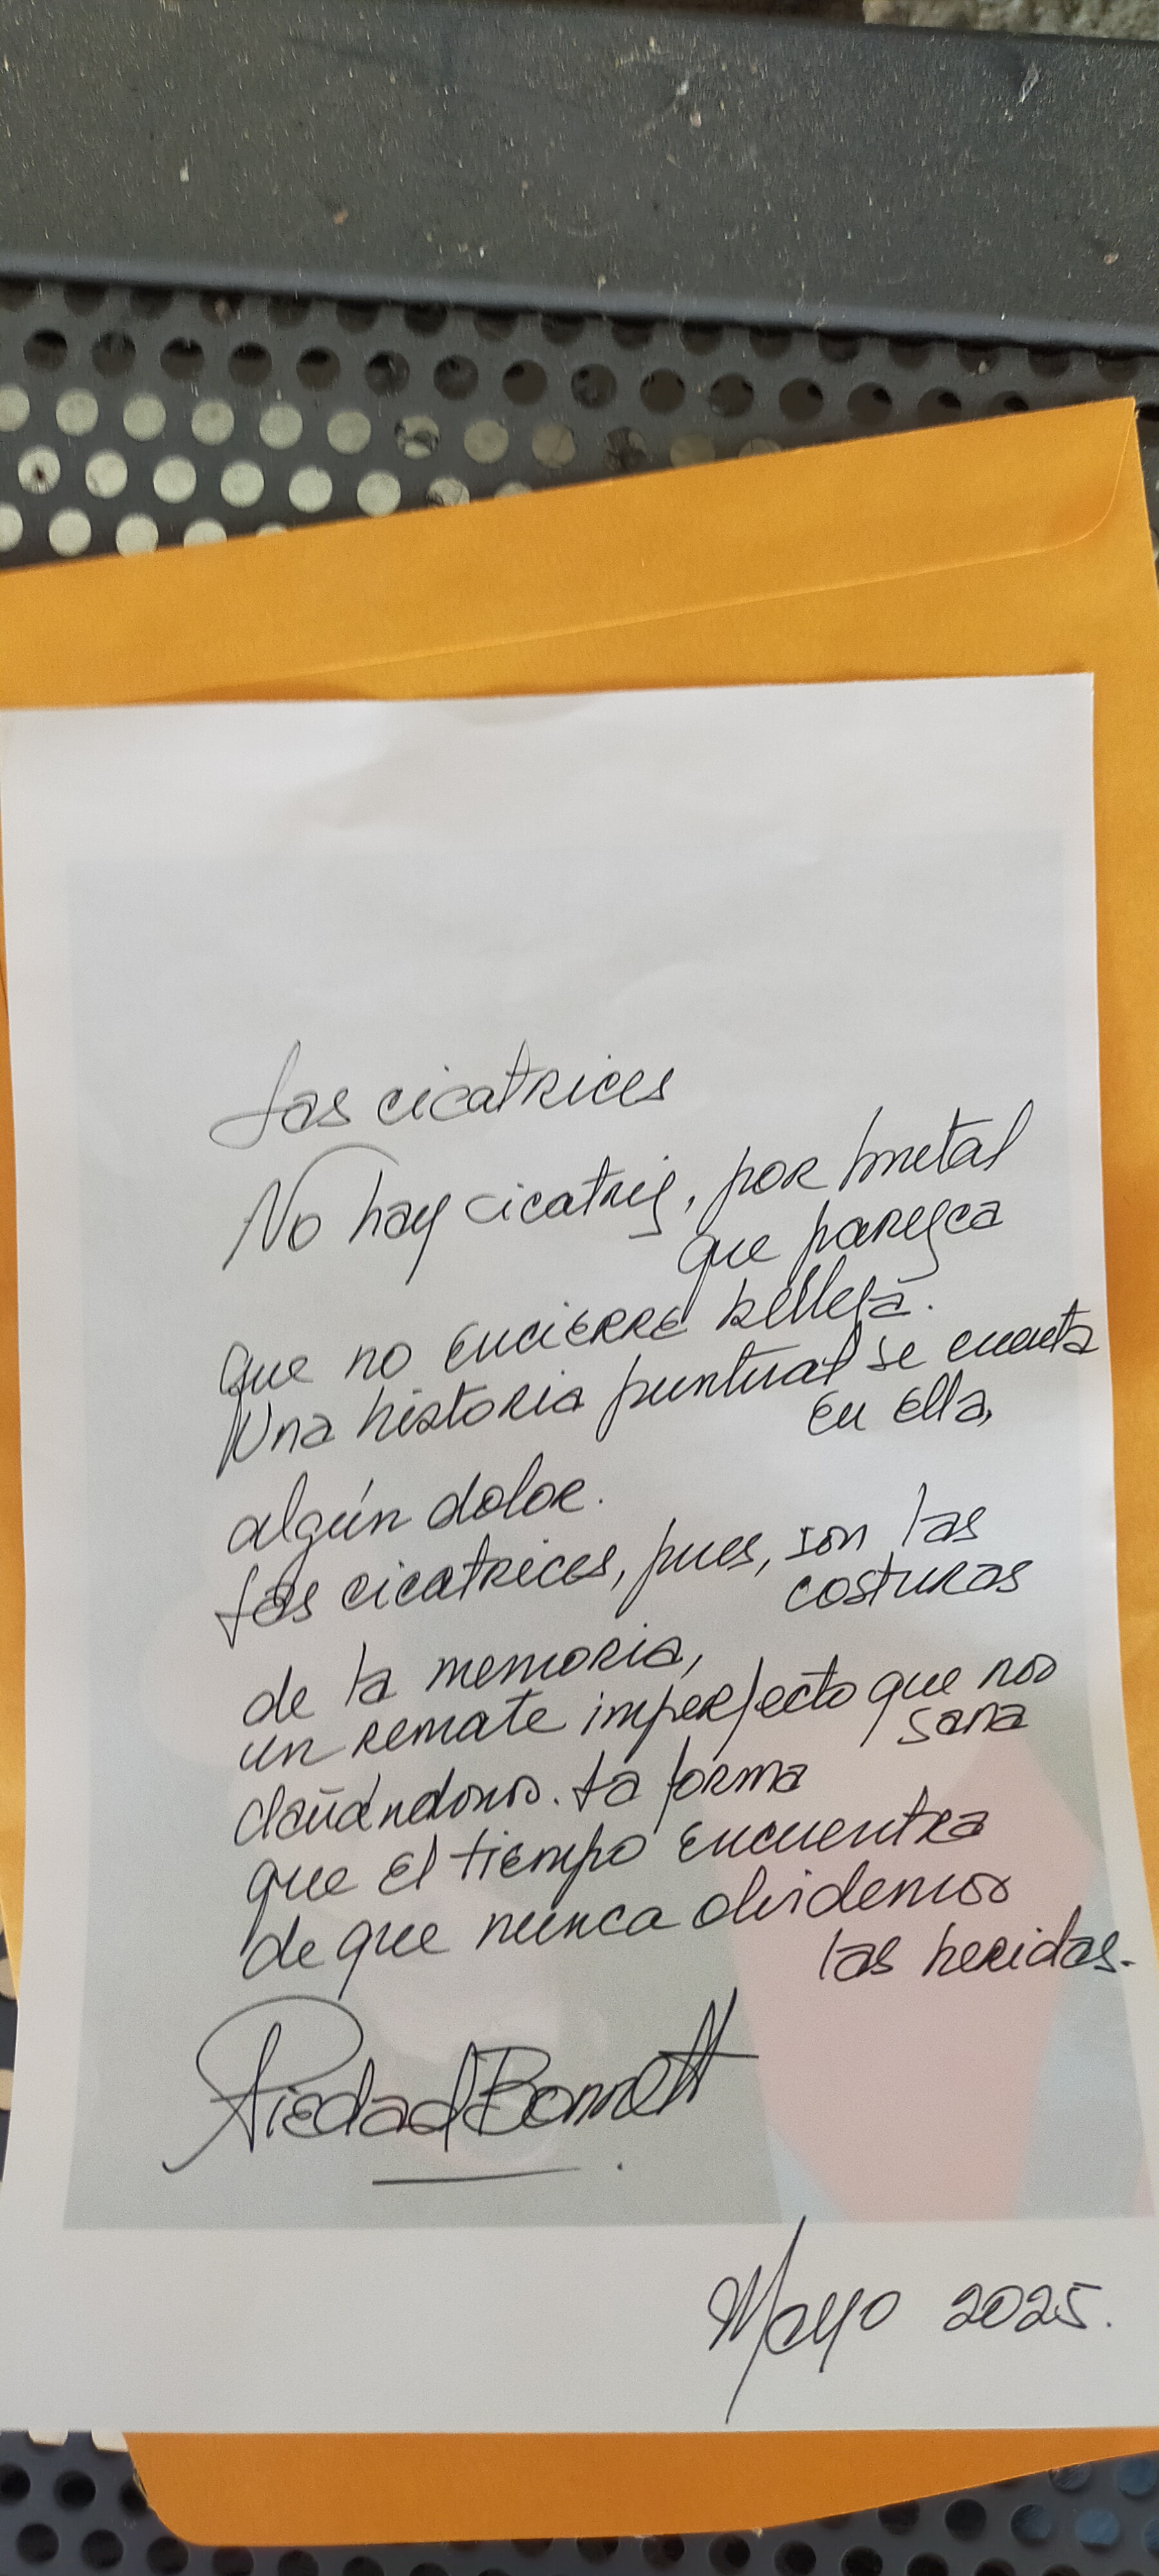 Las cicatrices
No hay cicatriz, por brutal
que parezca
que no encierre belleza.
Una historia puntual se cuenta
en ella,
algún dolor.
Las cicatrices, pues, son las
costuras
de la memoria,
un remate imperfecto que nos
sana
dañándonos. La forma
que el tiempo encuentra
de que nunca olvidemos
las heridas.
Piedad Bonnett
Mayo 2025.